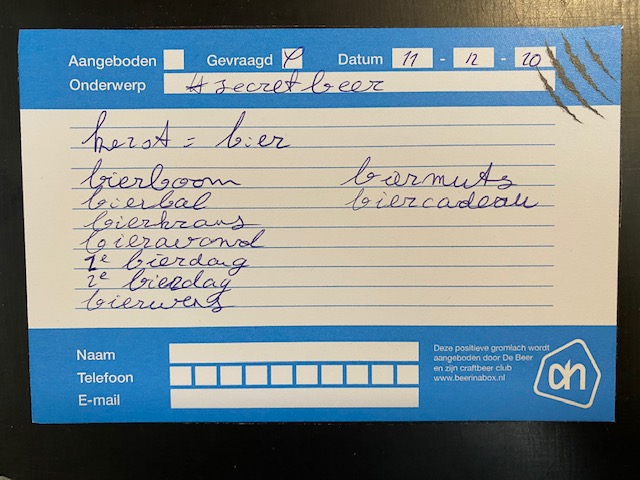 Aangeboden Gevraagd Datum 11 - 12 - 20
Onderwerp #secretbeer
kerst = bier
bierboom biermuts
bierbal biercadeau
bierkrans
bieravond
1e bierdag
2e bierdag
bierwens
Naam
Telefoon
E-mail
Deze positieve gromlach wordt
aangeboden door De Beer
en zijn craftbeer club
www.beerinabox.nl
ah